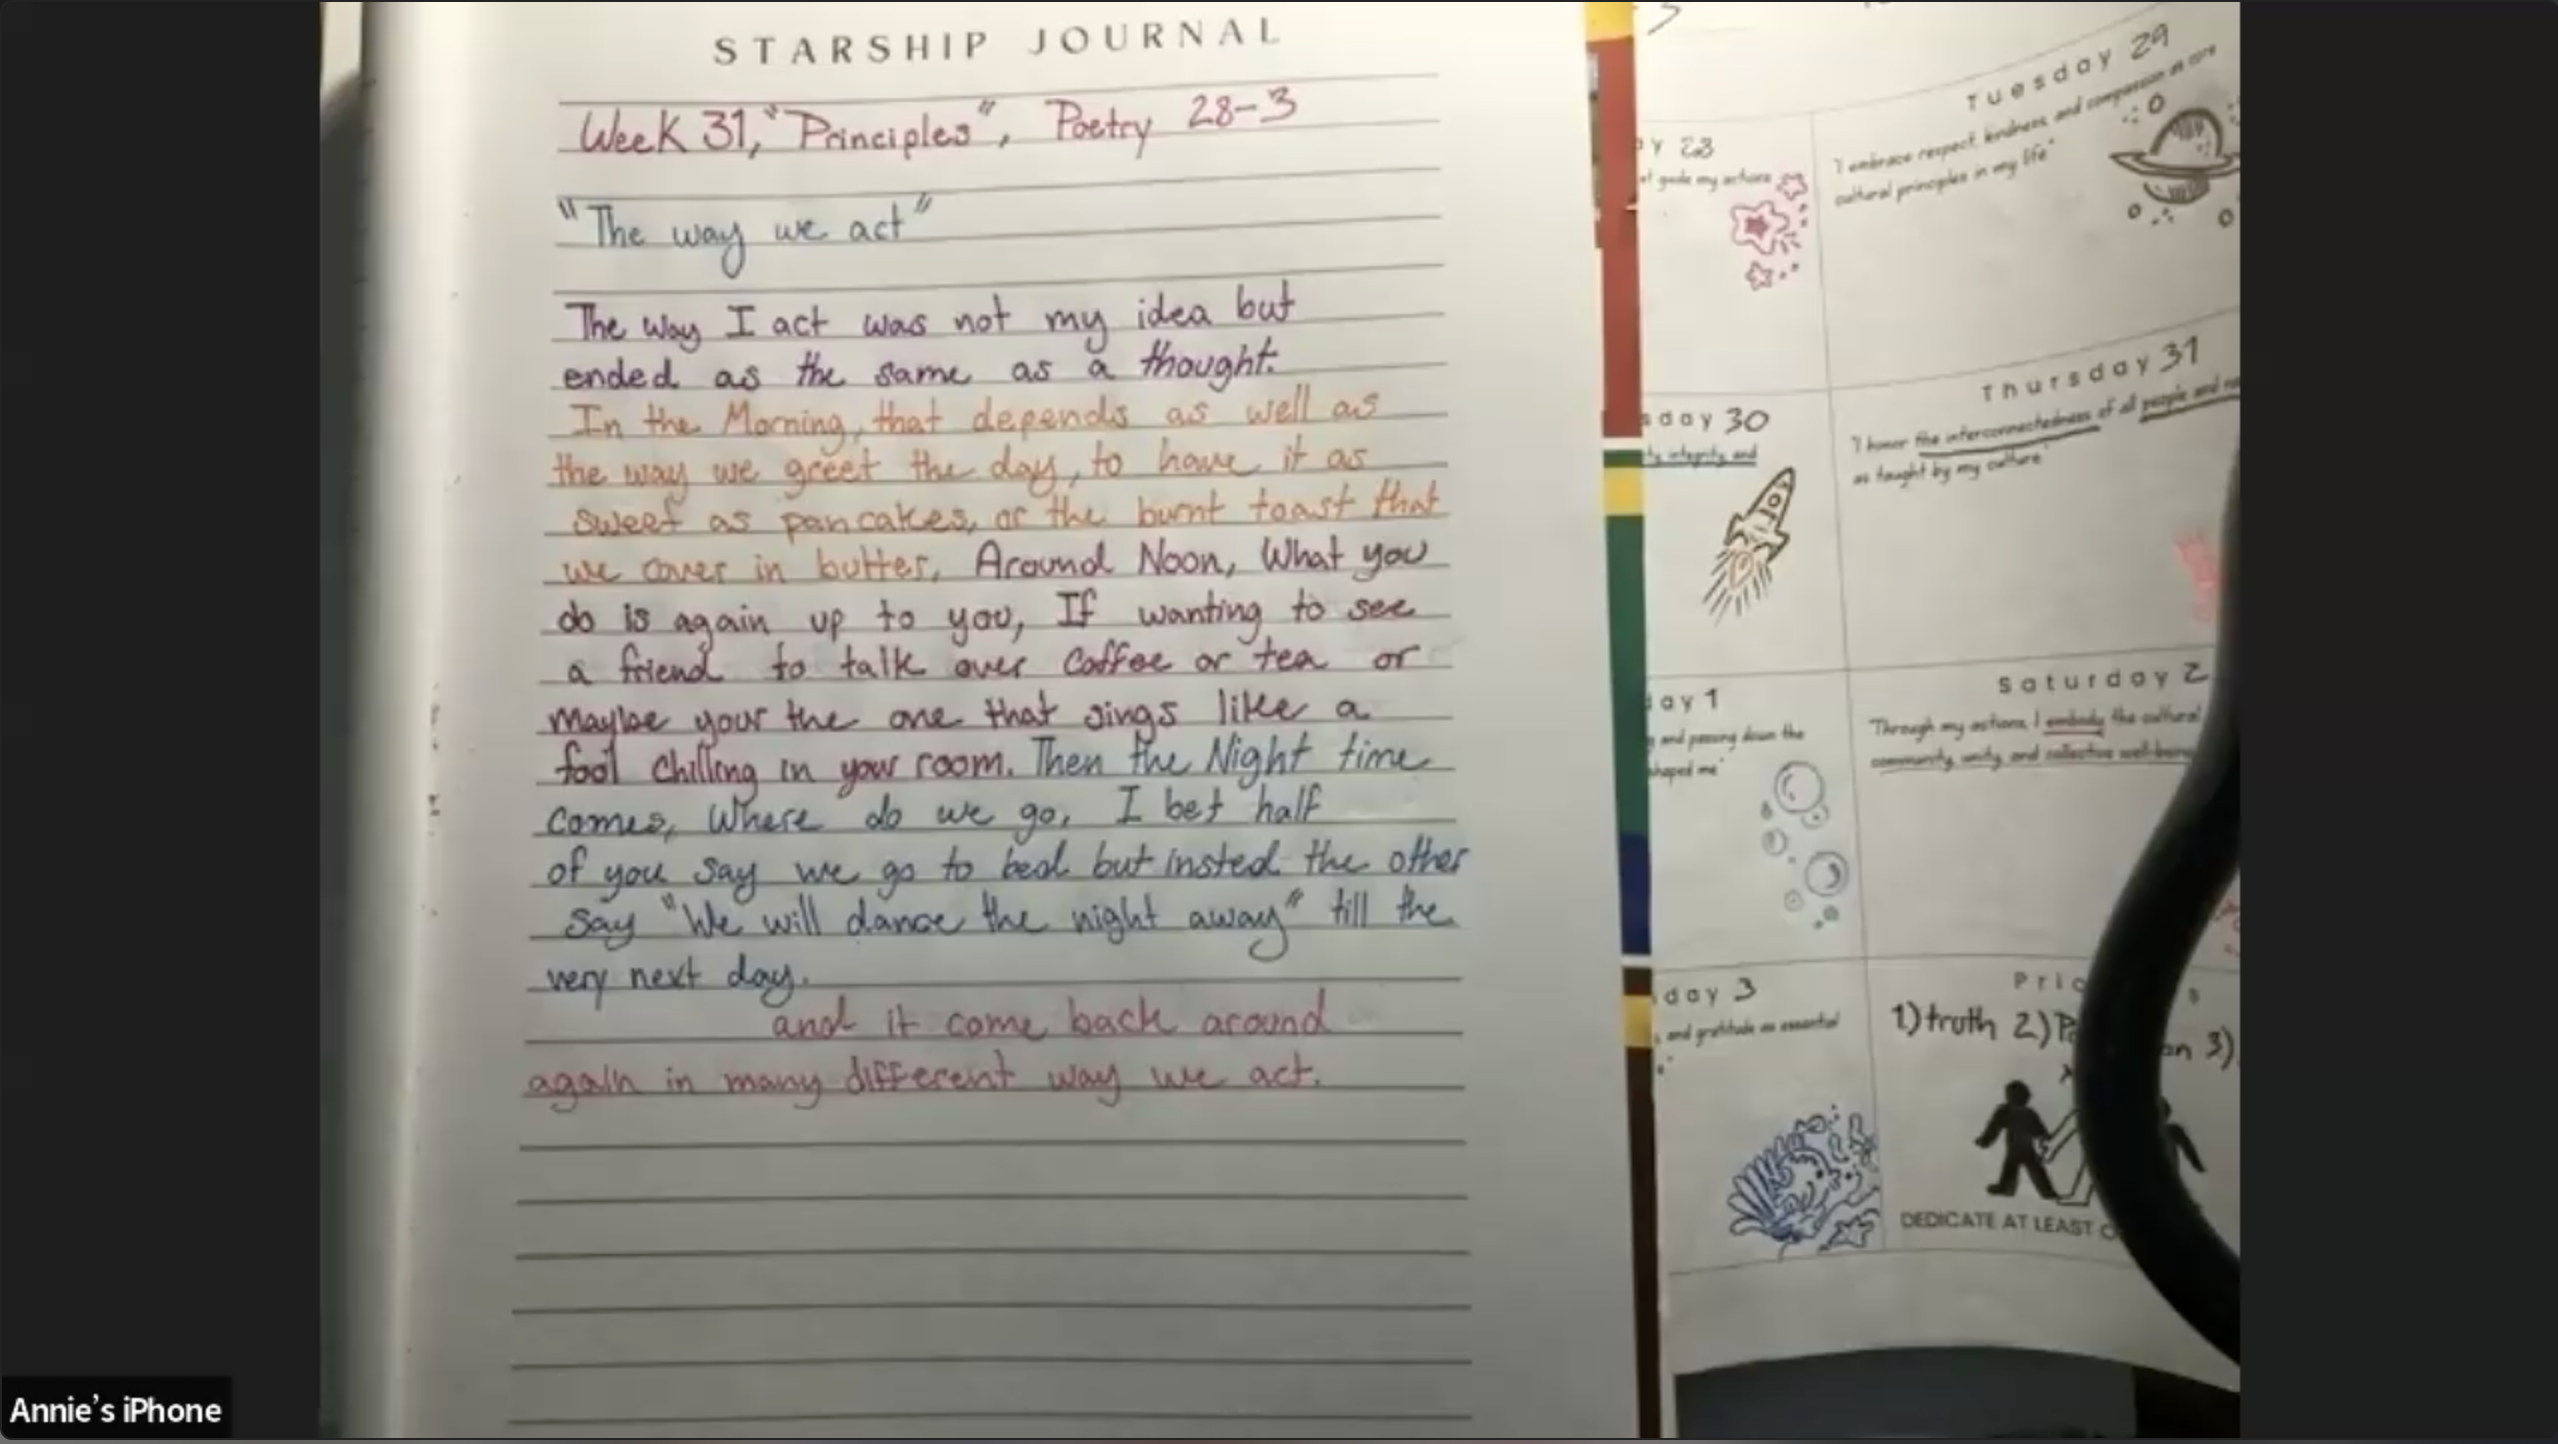 STARSHIP JOURNAL
Week 31, "Principles", Poetry 28-3
"The way we act"
The way I act was not my idea but
ended as the same as a thought.
In the Morning, that depends as well as
the way we greet the day, to have it as
sweet as pancakes, or the burnt toast that
we cover in butter. Around Noon, What you
do is again up to you, If wanting to see
a friend to talk over Coffee or tea or
maybe your the one that sings like a
fool Chilling in your room. Then the Night time
comes, Where do we go, I bet half
of you say we go to bed but insted the other
say "We will dance the night away" till the
very next day.
and it come back around
again in many different way we act.
Tuesday 29
"I embrace respect, kindness, and compassion as core
cultural principles in my life"
y 28
guide my actions
Thursday 31
"I honor the interconnectedness of all people and
as taught by my culture"
day 30
integrity, and
Saturday 2
"Through my actions, I embody the cultural
community, unity, and collective well-being
ay 1
and passing down the
shaped me"
day 3
and gratitude as essential
1) truth 2) 3)
DEDICATE AT LEAST
Annie's iPhone